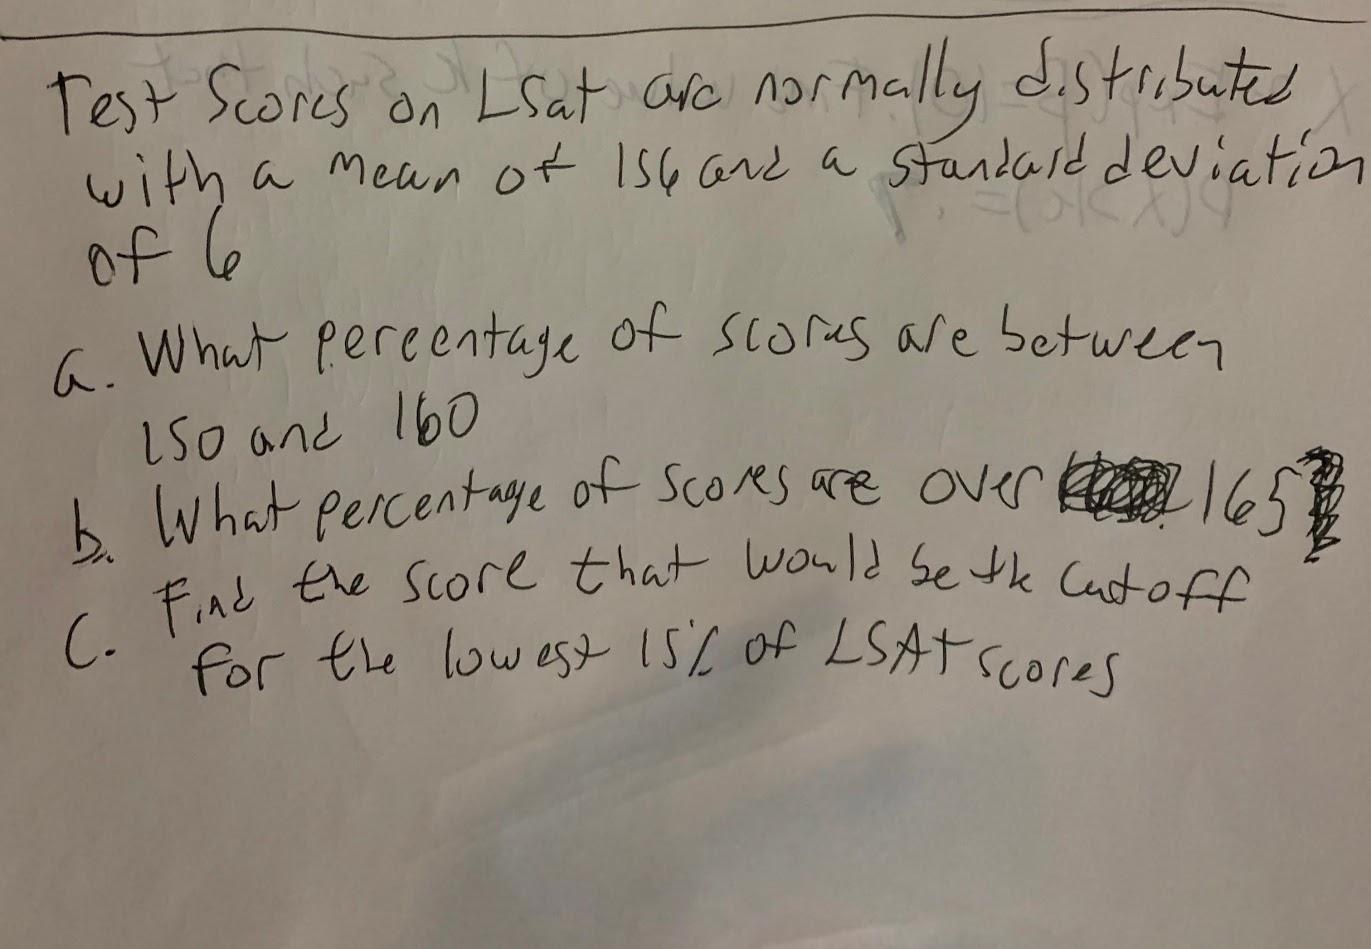 Test Scores on LSat are normally distributed
with a mean of 156 and a standard deviation
of 6
a. What percentage of scores are between
150 and 160
b. What percentage of scores are over 165
C. Find the score that would be the Cutoff
for the lowest 15% of LSAT scores